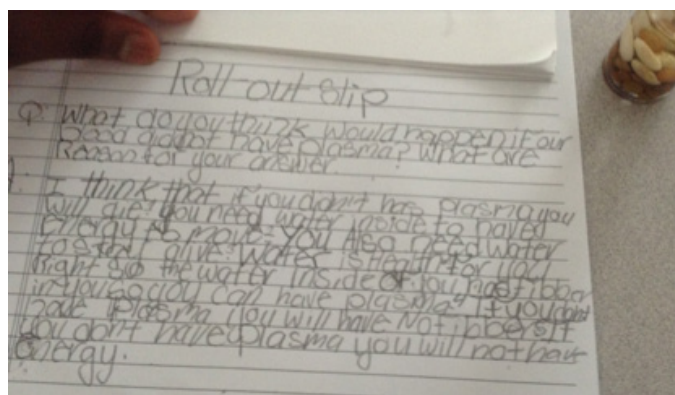 Roll-out Slip
Q: What do you think would happen if our
blood did not have plasma? What are
Reason for your answer.
A: I think that if you don't has plasma you
will die. You need water inside to haved
energy to move. You Also need water
to stay alive. Water is Health for you
Right so the water inside of you has fibber
in you so you can have plasma. If you don't
have plasma you will have Not ibbers If
you don't have plasma you will not have
energy.